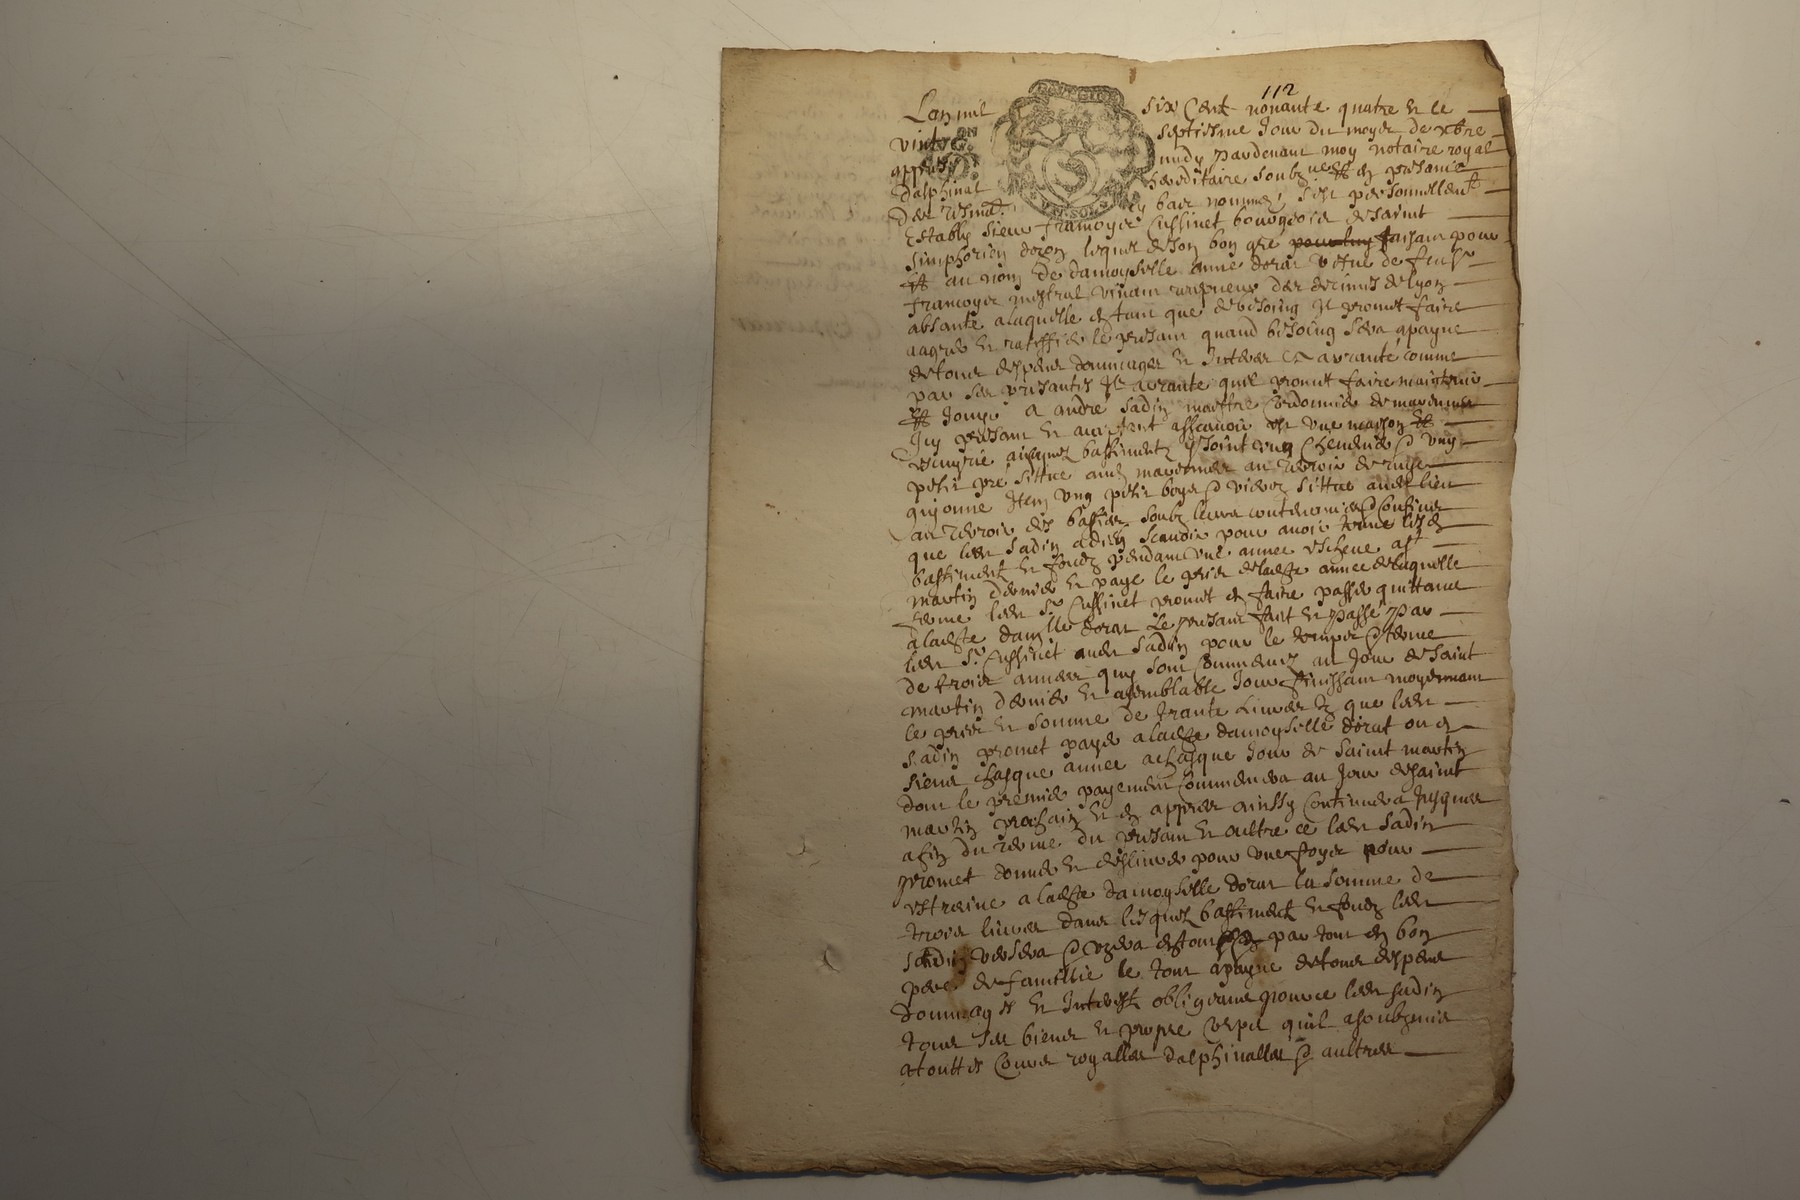 112
Lan mil six Cent nonante quatre et le
vint septiesme Jour du moys de xbre
appres midy pardevant moy notaire royal
dalphinal hereditaire soubzne et en presance
des tesmoi en bas nommes sest personnellemt
Estably sieur francoys Cussinet bourgeois de saint
simphorien dozon lequel de son bon gre faisant pour
et au nom de damoyselle anne dorat vefve de feu sr
francoys mestral vivant des decimes de lyon
absante a laquelle en tant que de besoing Il promet faire
aagreer et rattiffier le presant quand besoing sera apayne
de tous despens dommages et Interes a arranté comme
par ses presantes Il arrante quil promet faire maintenir
et Jouyr a andré sadin maistre Cordonnier de marennes
Icy presant et acceptant assavoir est une maison et
escuyrie aisques bastiments Joint ung et ung
petit pré sittue audt marennes au terroir de
guyonne Item ung petit boys sittue audt lieu
au terroir des soubz leurs contenances Confins
que ledt sadin a dict scavoir pour avoir tenue lesd
bastiments et fondz pendant une annee escheue a st
martin dernier et paye le prix de ladte annee de laquelle
ferme ledt sr Cussinet promet en faire passer quittance
a ladte damlle dorat Le presant fait et passé par
ledt sr Cussinet audt sadin pour le temps et terme
de trois annees quy sont Commences au Jour de saint
martin dernier et a semblable Jour finissant moyennant
le prix et somme de trante Livres que ledt
sadin promet payer a ladte damoyselle dorat ou es
siens chasque annee a chasque Jour de saint martin
dont le premier payement Commencera au Jour de saint
martin prochain et en appres ainssy Continuera Jusques
a fin du terme du presant et oultre ce ledt sadin
promet donner et deslivrer pour une foys pour
estreine a ladte damoyselle dorat la somme de
trois livres dans lesquels bastiment et fondz ledt
sadin versera et uzera par tout en bon
pere de famillie le tout apayne de tous despens
dommages et Interest obligeant pour ce ledt sadin
tous ses biens et propre Corps quil a soubzmis
a touttes Cours royalles dalphinalles et aultres